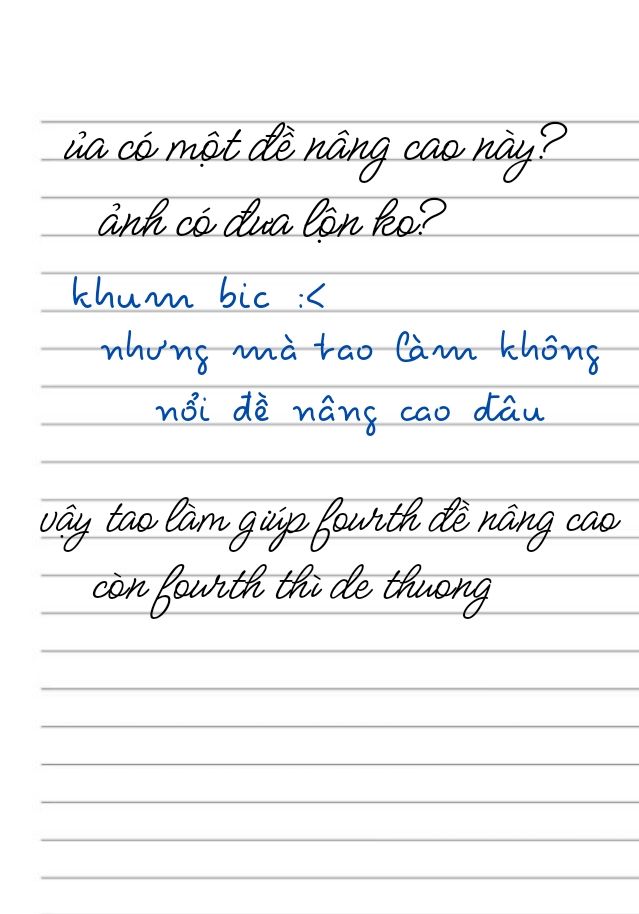 ủa có một đề nâng cao này?
ảnh có đưa lộn ko?
khum bic :<
nhưng mà tao làm không
nổi đề nâng cao đâu
vậy tao làm giúp fourth đề nâng cao
còn fourth thì de thuong